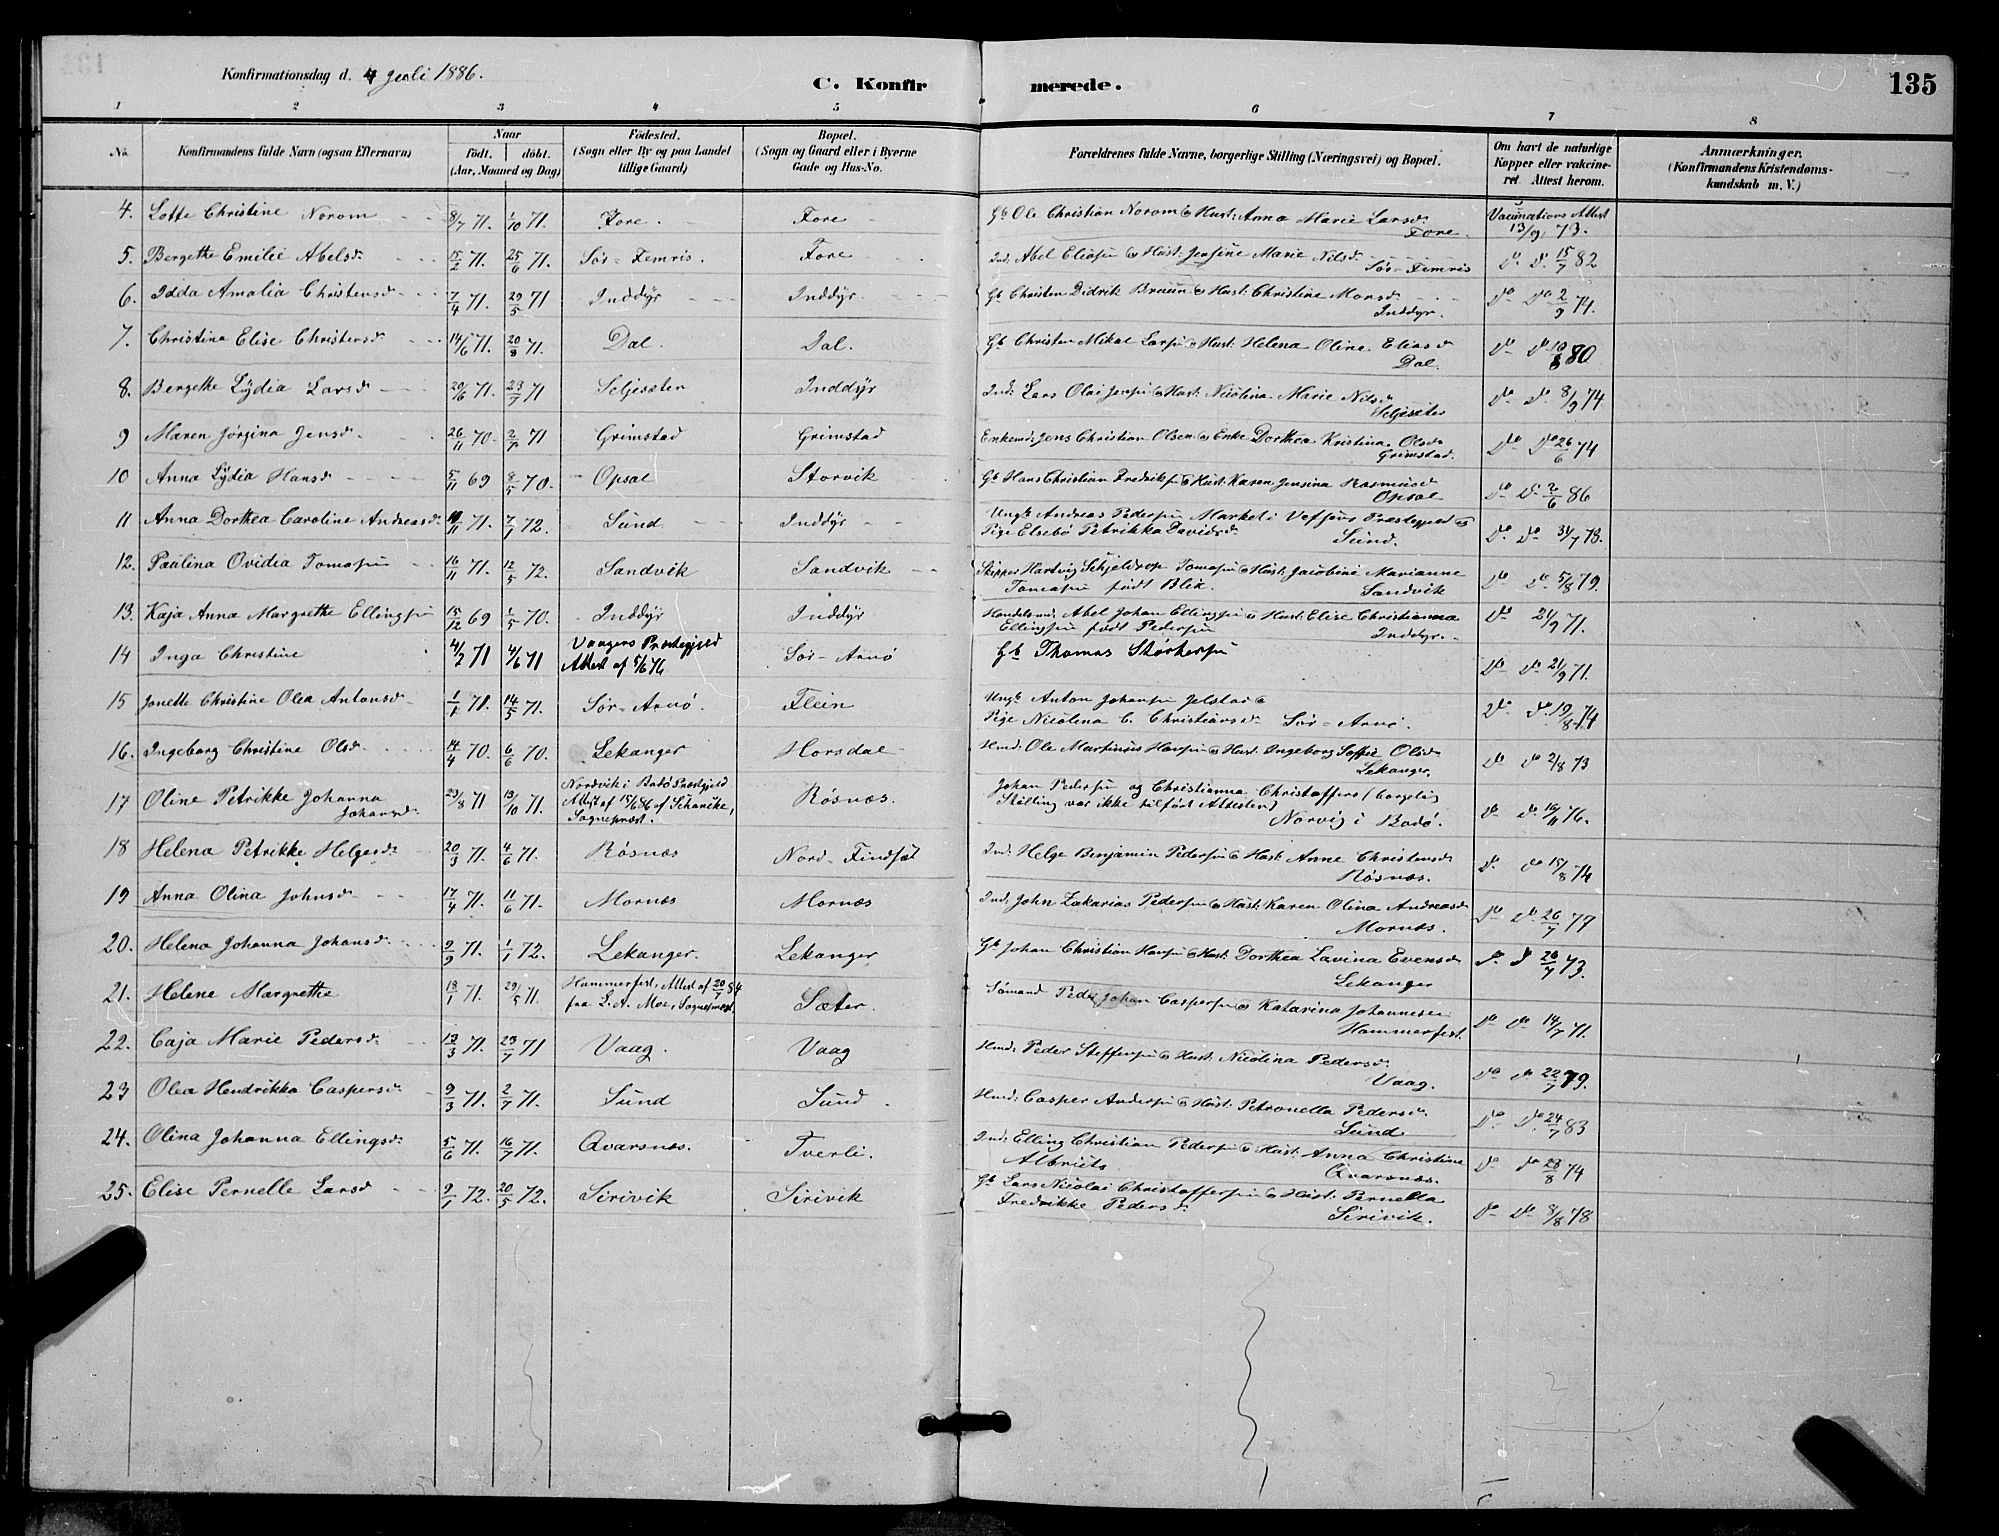 Konfirmationsdag d. 4 Juli 1886.
C. Konfirmerede.
135
1 2 3 4 5 6 7 8
No.
Konfirmandens fulde Navn (ogsaa Efternavn)
Naar
födt. döbt.
(Aar, Maaned og Dag)
Födested.
(Sogn eller By og paa Landet
tillige Gaard)
Bopæl.
(Sogn og Gaard eller i Byerne
Gade og Hus-No.
Forældrenes fulde Navne, borgerlige Stilling (Næringsvei) og Bopæl.
Om havt de naturlige
Kopper eller vakcine-
ret Attest herom.
Anmærkninger.
(Konfirmandens Kristendoms-
kundskab m. V.)
4. Lotte Christine Norom 8/7 71. 1/10 71. Fore. Fore Gb Ole Christian Norom & Hust: Anna Marie Larsd. Vacinations Attest
Fore. 13/9 73.
5. Bergethe Emilie Abelsd. 15/2 71. 25/6 71. Sör-Femris. Fore Ind: Abel Eliasen & Hust: Jensine Marie Nilsd. Do Do 15/7 82
Sör-Femris
6. Idda Amalia Christensd. 7/4 71. 29/5 71 Inddyr Inddyr Gb Christen Didrik Bruun & Hust: Christine Monsd. Do Do 2/9 74.
Inddyr.
7. Christina Elise Christensd. 14/6 71. 20/8 71. Dal. Dal. Gb Christen Mikal Larsen & Hust: Helena Oline Eliasd. Do Do 10/8 80
Dal.
8. Bergette Lydia Larsd. 29/6 71. 23/7 71 Seljesæter Inddyr Ind: Lars Olai Jensen & Hust: Nicolina Marie Nilsd. Do Do 8/9 74
Seljesæter
9 Maren Jörgina Jensd. 26/11 70. 2/7 71 Grimstad Grimstad Enkemd: Jens Christian Olsen & Enke Dorthea Kristina Olsd. Do Do 26/6 74
Grimstad.
10 Anna Lydia Hansd. 5/11 69 8/5 70. Opsal Storvik Gb Hans Christian Fredriksen & Hust: Karen Jensina Rasmusd. Do Do 2/6 86
Opsal
11 Anna Dorthea Caroline Andreasd. 10/11 71. 7/7 72. Sund Inddyr Ungk. Andreas Pedersen Market i Vefsens Præstegjeld &
Pige Elsebö Petrikka Davidsd. Sund. Do Do 31/7 73.
12. Paulina Ovidia Tomasen 16/11 71. 12/5 72. Sandvik Sandvik Skipper Hartvig Schjeldrop Tomasen & Hust: Jacobine Marianne
Tomasen født Blix. Sandvik Do Do 5/8 79.
13. Kaja Anna Margrethe Ellingsen 15/12 69 1/5 70. Inddyr Inddyr Handelsmd: Abel Johan Ellingsen & Hust: Elise Christianna
Ellingsen født Pedersen Inddyr. Do 21/9 71.
14 Inga Christine 4/2 71 4/6 71 Vaagens Præstegjeld
Attest af 5/6 76 Sör-Arnö Gb Thomas Störkersen Do Do 21/9 71.
15 Jonette Christine Olea Antonsd. 1/1 71. 14/5 71. Sör-Arnö. Flein Ungk. Anton Johansen Jelstad &
Pige Nicolena C. Christiansd. Sör-Arnö. Do Do 19/8 74
16. Ingeborg Christine Olsd. 14/4 70. 6/6 70. Lekanger Horsdal Hmd: Ole Martinus Hansen & Hust: Ingeborg Soffie Olsd. Do Do 2/8 73
Lekanger.
17 Oline Petrikke Johanna
Johansd. 23/8 71 13/10 71. Nordvik i Bodö Præstegjeld
Attest af 15/6 86 af Schanike,
Sognepræst. Rösnæs. Johan Pedersen og Christianna Christoffers (borgelig
Stilling var ikke tilfört Attesten)
Norvig i Bodö. Do Do 16/11 76.
18 Helena Petrikke Helgesd. 20/3 71. 4/6 71. Rösnæs Nord-Findset Ind: Helge Benjamin Pedersen & Hust: Anne Christensd. Do Do 15/8 74
Rösnæs.
19 Anna Olina Johnsd. 17/4 71. 11/6 71. Mornæs Mornæs Ind: John Zakarias Pedersen & Hust: Karen Olina Andreasd. Do Do 26/7 79
Mornæs.
20. Helena Johanna Johansd. 9/9 71. 1/1 72. Lekanger. Lekanger Gb Johan Christian Hansen & Hust: Dorthea Lavina Evensd. Do Do 26/7 73.
Lekanger
21. Helene Margrethe 18/1 71. 29/5 71. Hammerfest, Attest af 20/7 84
fra L. A. Moe, Sognepræst. Sæter. Sömand Peder Johan Caspersen & Katarina Johannesen
Hammerfest. Do Do 14/7 71.
22. Caja Marie Pedersd. 12/3 71. 23/7 71 Vaag. Vaag Hmd: Peder Steffensen & Hust: Nicolina Pedersd. Do Do 22/7 79.
Vaag.
23 Olea Hendrikka Caspersd. 9/3 71. 2/7 71. Sund Sund. Hmd: Casper Andersen & Hust: Petronella Pedersd. Do Do 24/7 83
Sund
24. Olina Johanna Ellingsd. 5/6 71. 16/7 71. Qvarsnæs. Tverli. Ind: Elling Christian Pedersen & Hust: Anna Christine
Albrigts. Qvarsnæs. Do Do 28/8 74
25. Elise Pernelle Larsd 9/1 72. 20/5 72. Sirivik Sirivik Gb Lars Nicolai Christoffersen & Hust: Pernella
Fredrikke Pedersd. Sirivik. Do Do 8/8 78